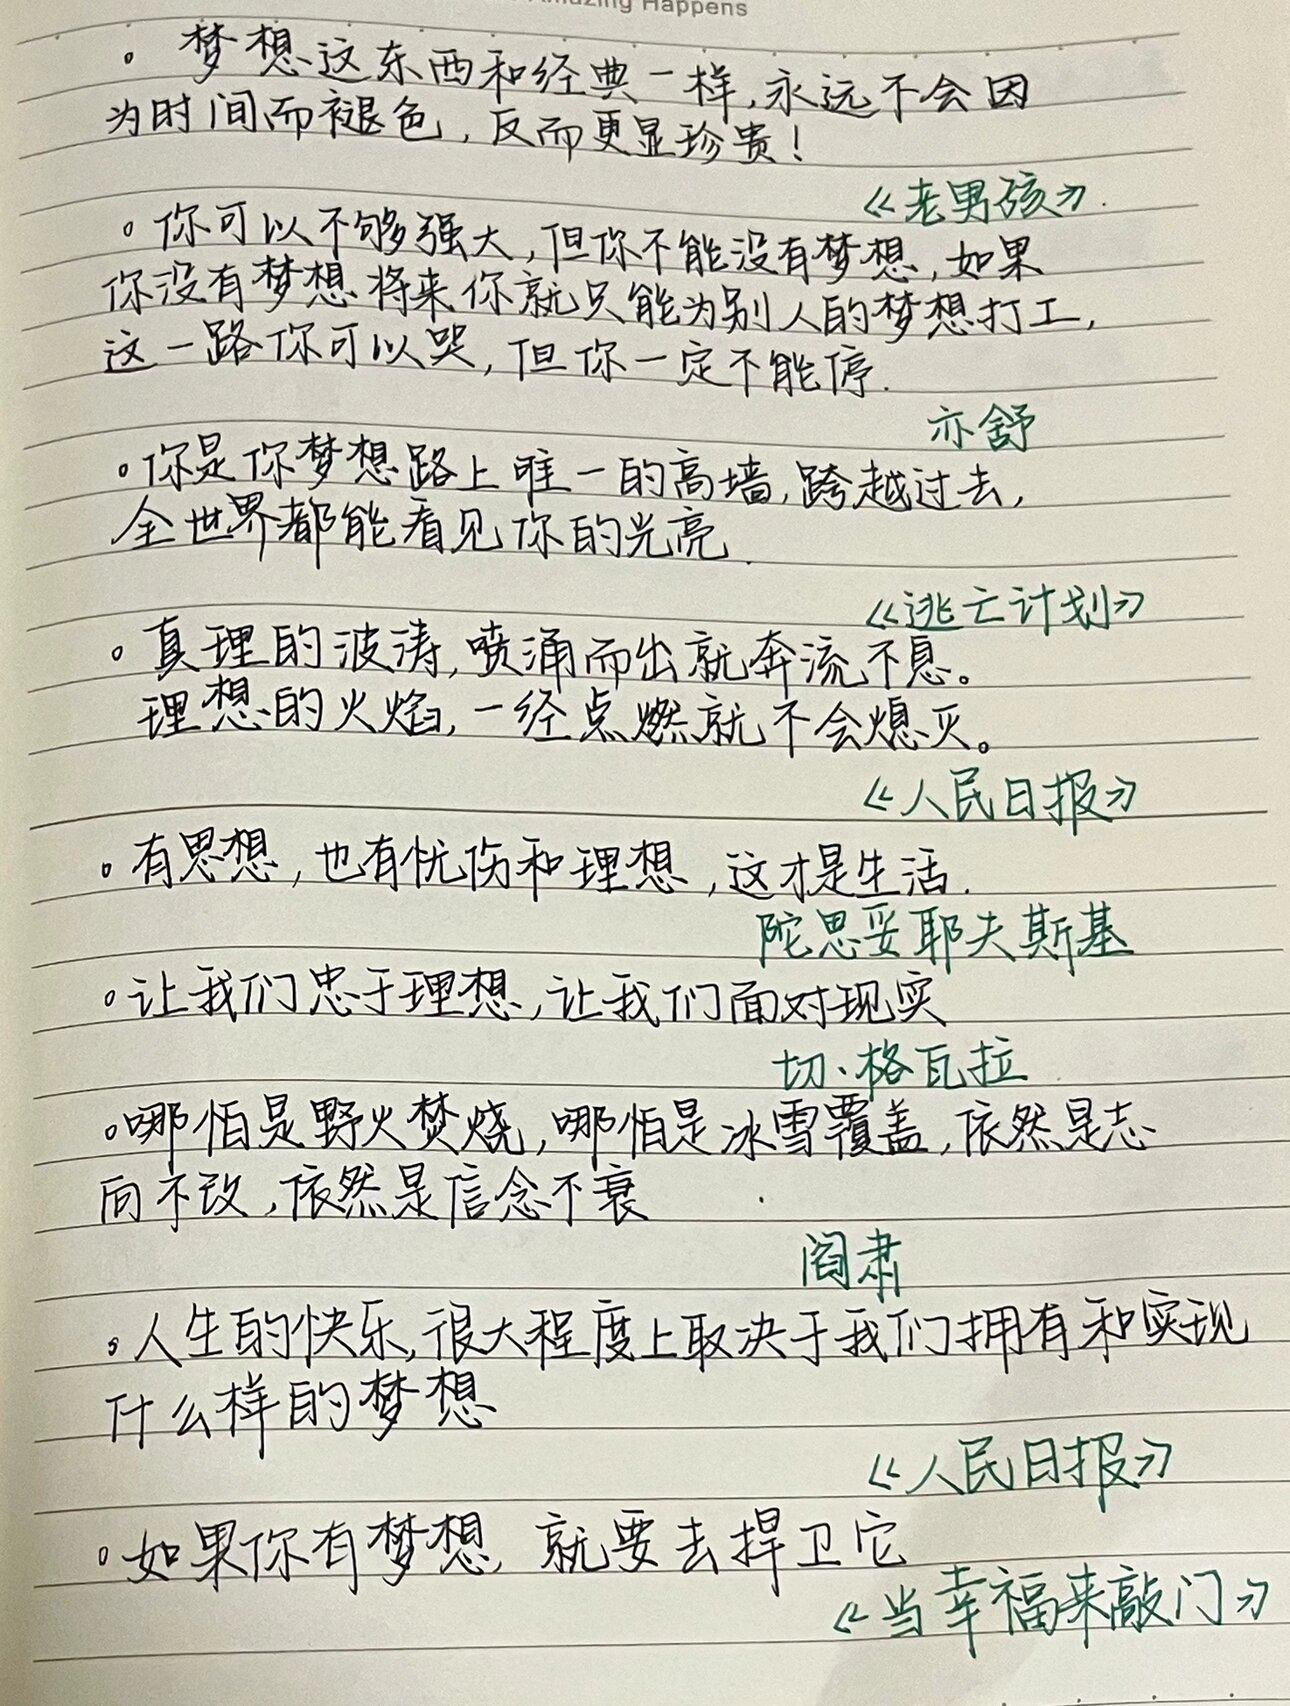 Amazing Happens
。梦想这东西和经典一样,永远不会因
为时间而褪色,反而更显珍贵!
《老男孩》.
。你可以不够强大,但你不能没有梦想,如果
你没有梦想将来你就只能为别人的梦想打工,
这一路你可以哭,但你一定不能停.
亦舒
。你是你梦想路上唯一的高墙,跨越过去,
全世界都能看见你的光亮.
《逃亡计划》
。真理的波涛,喷涌而出就奔流不息。
理想的火焰,一经点燃就不会熄灭。
《人民日报》
。有思想,也有忧伤和理想,这才是生活.
陀思妥耶夫斯基
。让我们忠于理想,让我们面对现实
切·格瓦拉
。哪怕是野火焚烧,哪怕是冰雪覆盖,依然是志
向不改,依然是信念不衰
阎肃
。人生的快乐,很大程度上取决于我们拥有和实现
什么样的梦想
《人民日报》
。如果你有梦想,就要去捍卫它
《当幸福来敲门》